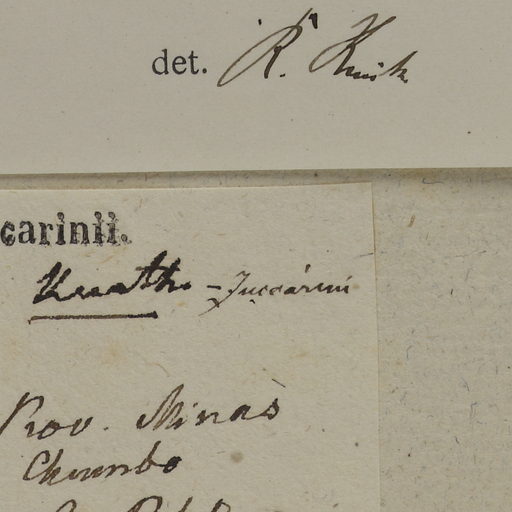 det. R. Knuth
carinii.
Kunth. - Zuccarini
Prov. Minas
Chumbo